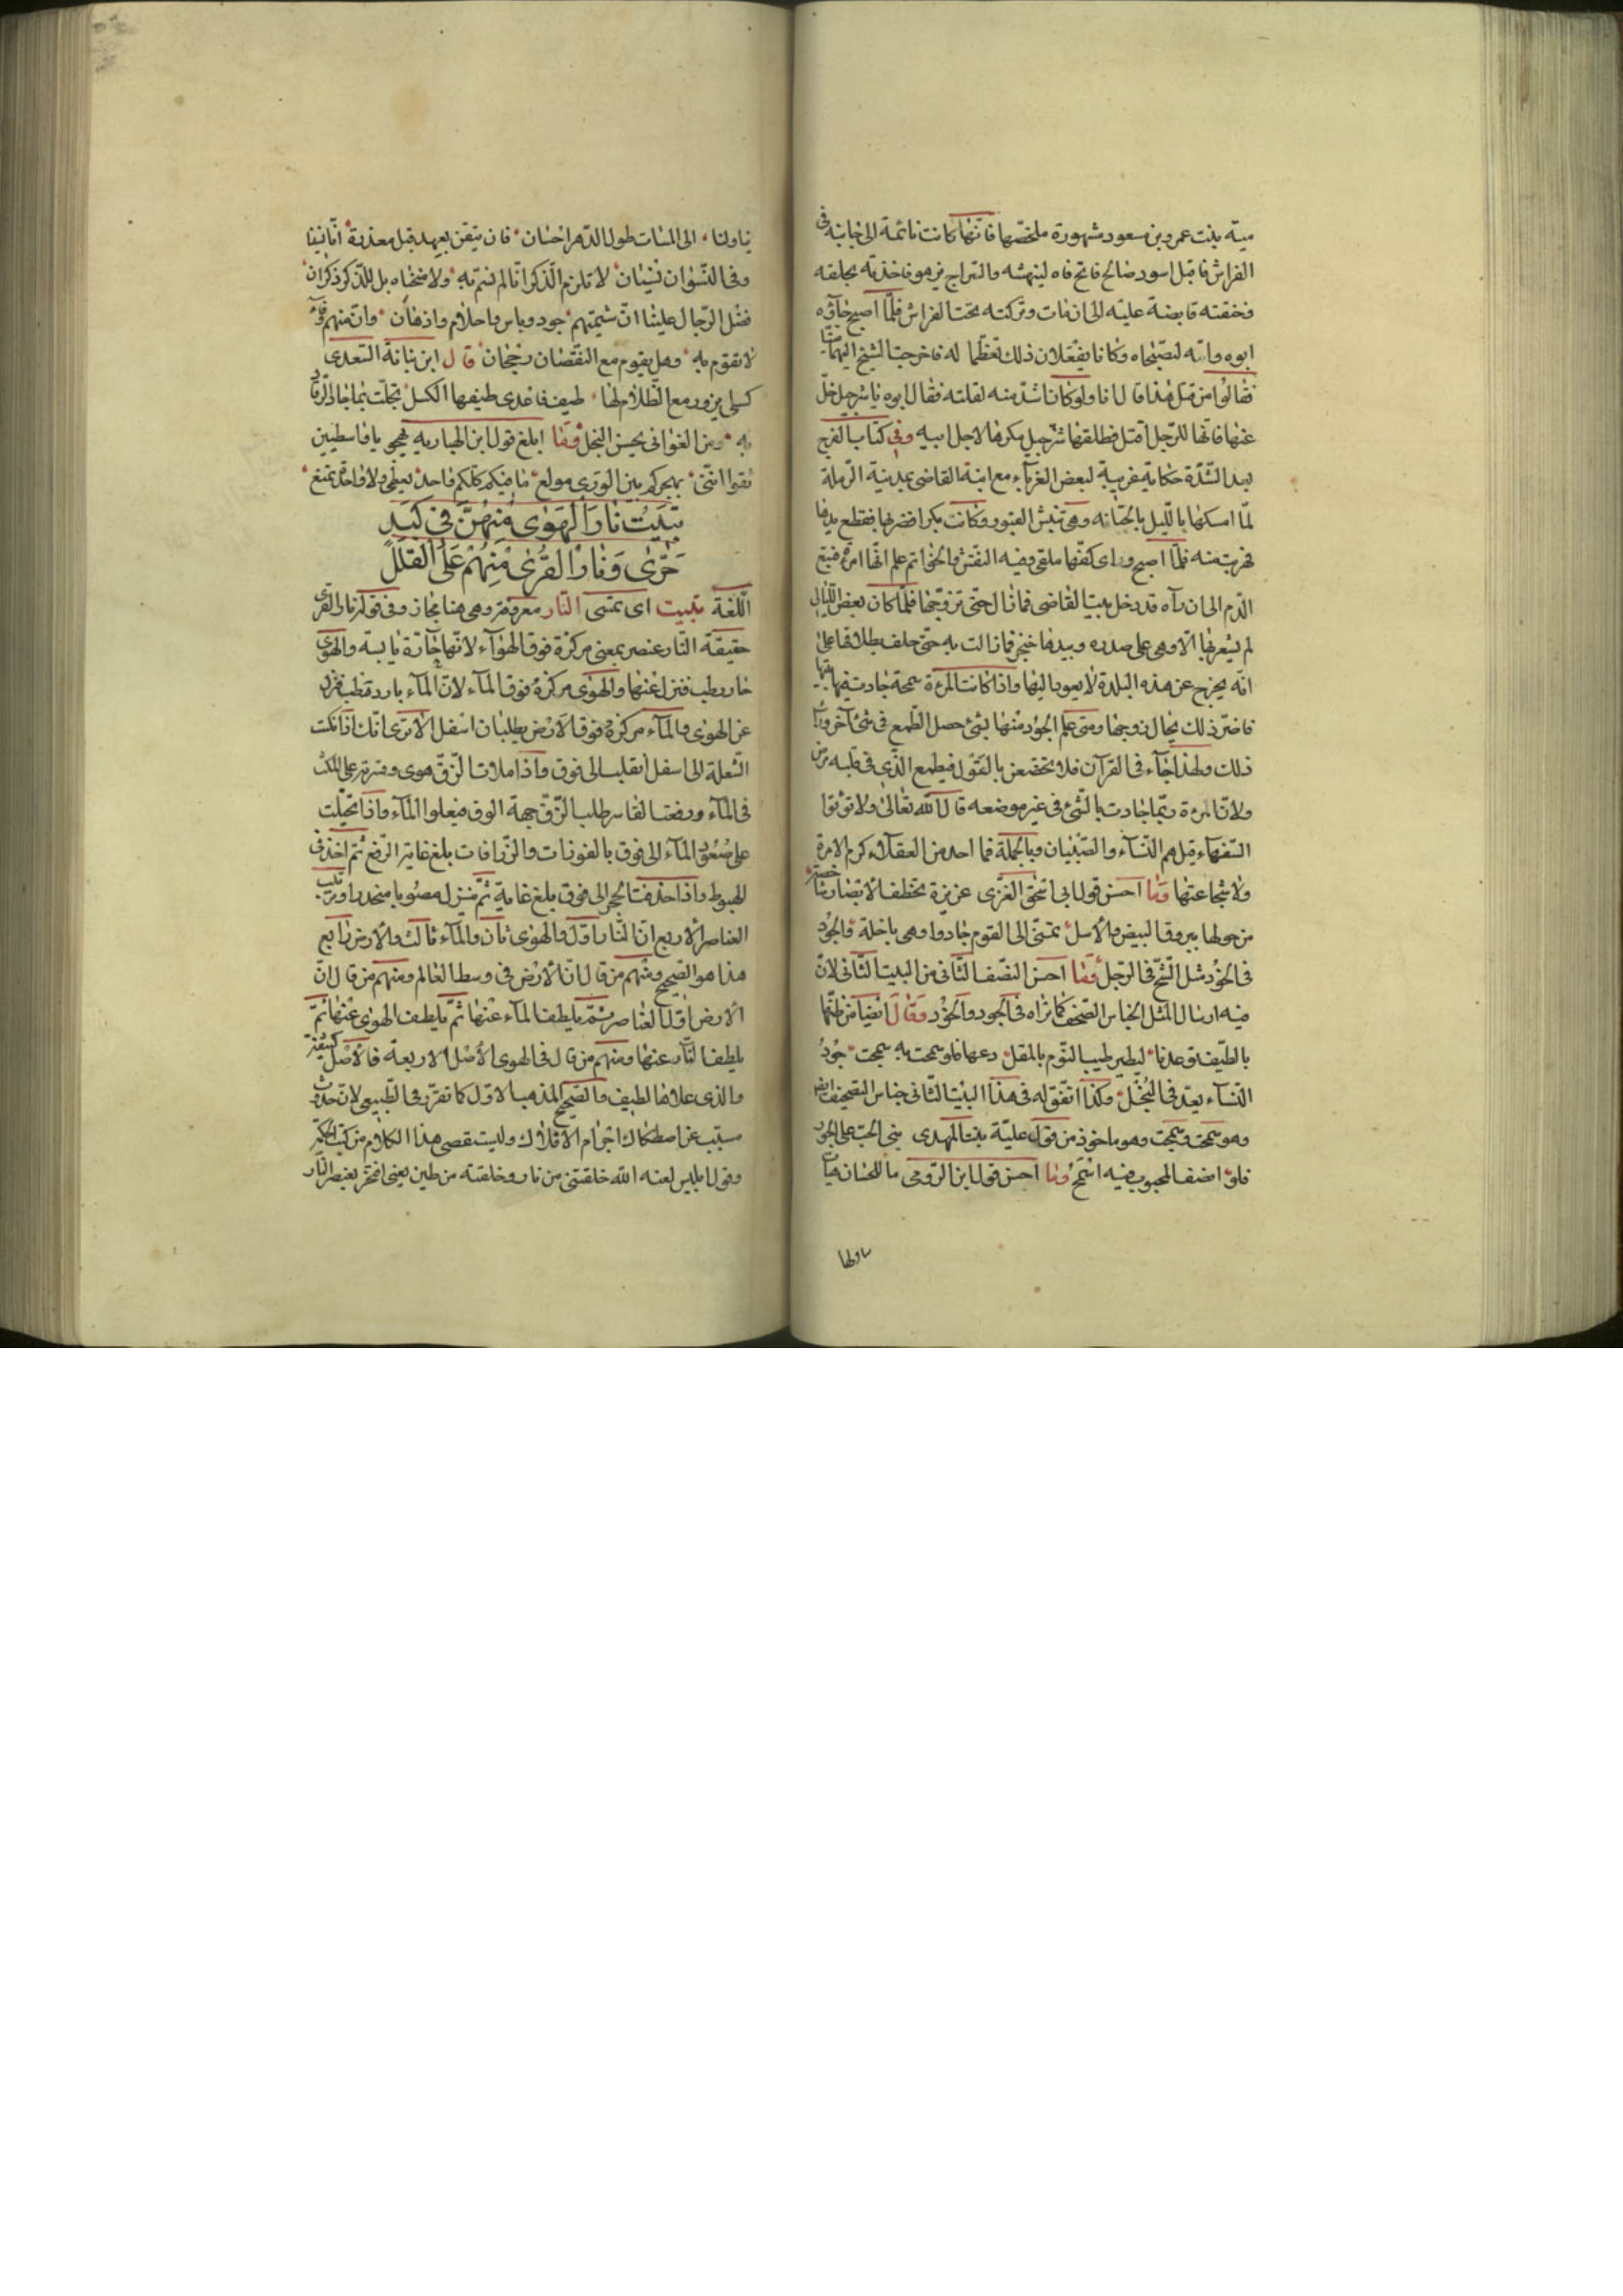 مية بنت عمرو بن مسعود مشهورة ملخصها فانها كانت نائمة الى جانبه في
الفراش فاقبل اسود صالح فاتح فاه لينهشه والسراج يزهو فاخذته بحلقه
فخنقته قابضة عليه الى ان مات وتركته تحت الفراش فلما اصبح جآؤه
ابوه وامه ليصبحاه وكانا يفعلان ذلك تعظيما له فاخرجت الشيخ اليهما ميتا
فقالوا من قتل هذا قالت انا ولو كان اشد منه لقتلته فقال ابوه يا شرحبيل خل
عنها فانها للرجل اقتل فطلقها شرحبيل مكرها لاجل ابيه وفي كتاب الفرج
بعد الشدة حكاية غريبة لبعض الغرباء مع ابنة القاضى بمدينة الرملة
لما امسكها بالليل بالجبانه وهى تنبش القبور وكانت بكرا فضربها فقطع يدها
فهربت منه فلما اصبح وراى كفها ملقى وفيه النقش والخواتم علم انها امرأة فتبع
الدم الى ان رآه قد دخل بيت القاضى فما زال حتى تزوجها فلما كان بعض الليالى
لم يشعر بها الا وهى على صدره وبيدها خنجر فما زالت به حتى حلف بطلاقها على
انه يخرج عن هذه البلدة لا يعود اليها واذا كانت المرءة سمحة جادت فيها بيتها
فاضر ذلك بحال زوجها ومتى علم الجود منها بشئ حصل الطمع فى شئ آخر وراء
ذلك ولهذا جآء فى القرآن فلا تخضعن بالقول فيطمع الذى فى قلبه مرض
ولان المرءة ربما جادت بالشئ فى غير موضعه قال الله تعالى ولا تؤتوا
السفهاء قيل هم النسآء والصبيان وبالجملة فما احد من العقلاء كرم الامرة
ولا شجاعتها وما احسن قول ابى اسحق الغزى عزيزة تخطف الابصار
من حولها ببروق البيض والاسل تمشى الى القوم جادوا وهى باخلة والجود
فى الخود مثل الشح فى الرجل وما احسن النصف الثانى من البيت الثانى لان
فيه ارسال المثل الجناس المصحف كما تراه فى الجود والخود وقال ايضا من ظنها
بالطيف توعدنا ليطير طيب النوم بالمقل دعها فلو سمحت به سمجت جود
النسآء يعد فى البخل وكذا اتفق له فى هذا البيت الثانى جناس التصحيف ايضا
وهو سمحت وسمجت وهو ماخوذ من قول علية بنت المهدى بنى الحب على الجور
فلو انصف المحبوب فيه اسمج وما احسن قول ابن الرومى ما للحسان
يا ولنا
يا ولنا الى المسات طول الدهر احسان فان تيقن بعهد قبل معذرة انا نسينا
وفى النسوان نسيان لا تلزم الذكر انا لم نسم به ولا منحناه بل للذكر ذكران
فضل الرجال علينا ان شيمتهم جود وباس واحلام واذهان وان منهم وفآء
لا نقوم به وهل يقوم مع النقصان رجحان قال ابن نباتة السعدى
كسلى يزور مع الظلام لها طيف فاعدى طيفها الكسل بخلت بما جاد الرقاد
به ومن الغوانى يحسن البخل وما ابلغ قول ابن الهبارية يهجو يا فاسطيين
ثقوا اننى بهجوكم بين الورى مولع ما فيكم كلكم واحد يعطى ولا واحدة تمنع
تبيت نار الهوى منهن فى كبد
حرى ونار القرى منهم على القلل
اللغة تبيت اى تمسى النار معروفة وهى هنا مجاز وفى قوله نار القرى
حقيقة النار عنصر بمعنى مركزه فوق الهوآء لانها حارة يابسة والهوى
حار رطب فنزل عنها والهوى مركزه فوق المآء لان المآء بارد رطب فنزل
عن الهوى والمآء مركزه فوق الارض يطلبان اسفل الا ترى انك اذا نكست
الشعلة الى اسفل انقلبت الى فوق واذا ملات الزق هوى وقسرته على المكث
فى المآء ورفعت القاسر طلب الزق جهة الفوق فيعلو المآء واذا تحيلت
على صعود المآء الى فوق بالفوارات والزرافات بلغ غاية الرفع ثم اخذ فى
الهبوط واذا حذفت الحجر الى فوق بلغ غاية ثم نزل مصوبا منحدرا وترتيب
العناصر الاربع ان النار اول والهوى ثان والمآء ثالث والارض رابع
هذا هو الصحيح ومنهم من قال ان الارض فى وسط العالم ومنهم من قال ان
الارض اول العناصر ثم يلطف المآء عنها ثم يلطف الهوى عنها ثم
يلطف النار عنها ومنهم من قال فى الهوى الاصل الاربعة فالاصل كثيفة
والذى علاها لطيف والصحيح المذهب الاول كما تقرر فى الطبيعى لان حدوث
مسبب عن اصطكاك اجرام الافلاك وليستقصى هذا الكلام من كتب الحكمة
وقول ابليس لعنه الله خلقتنى من نار وخلقته من طين يعنى افتخر بعنصر النار